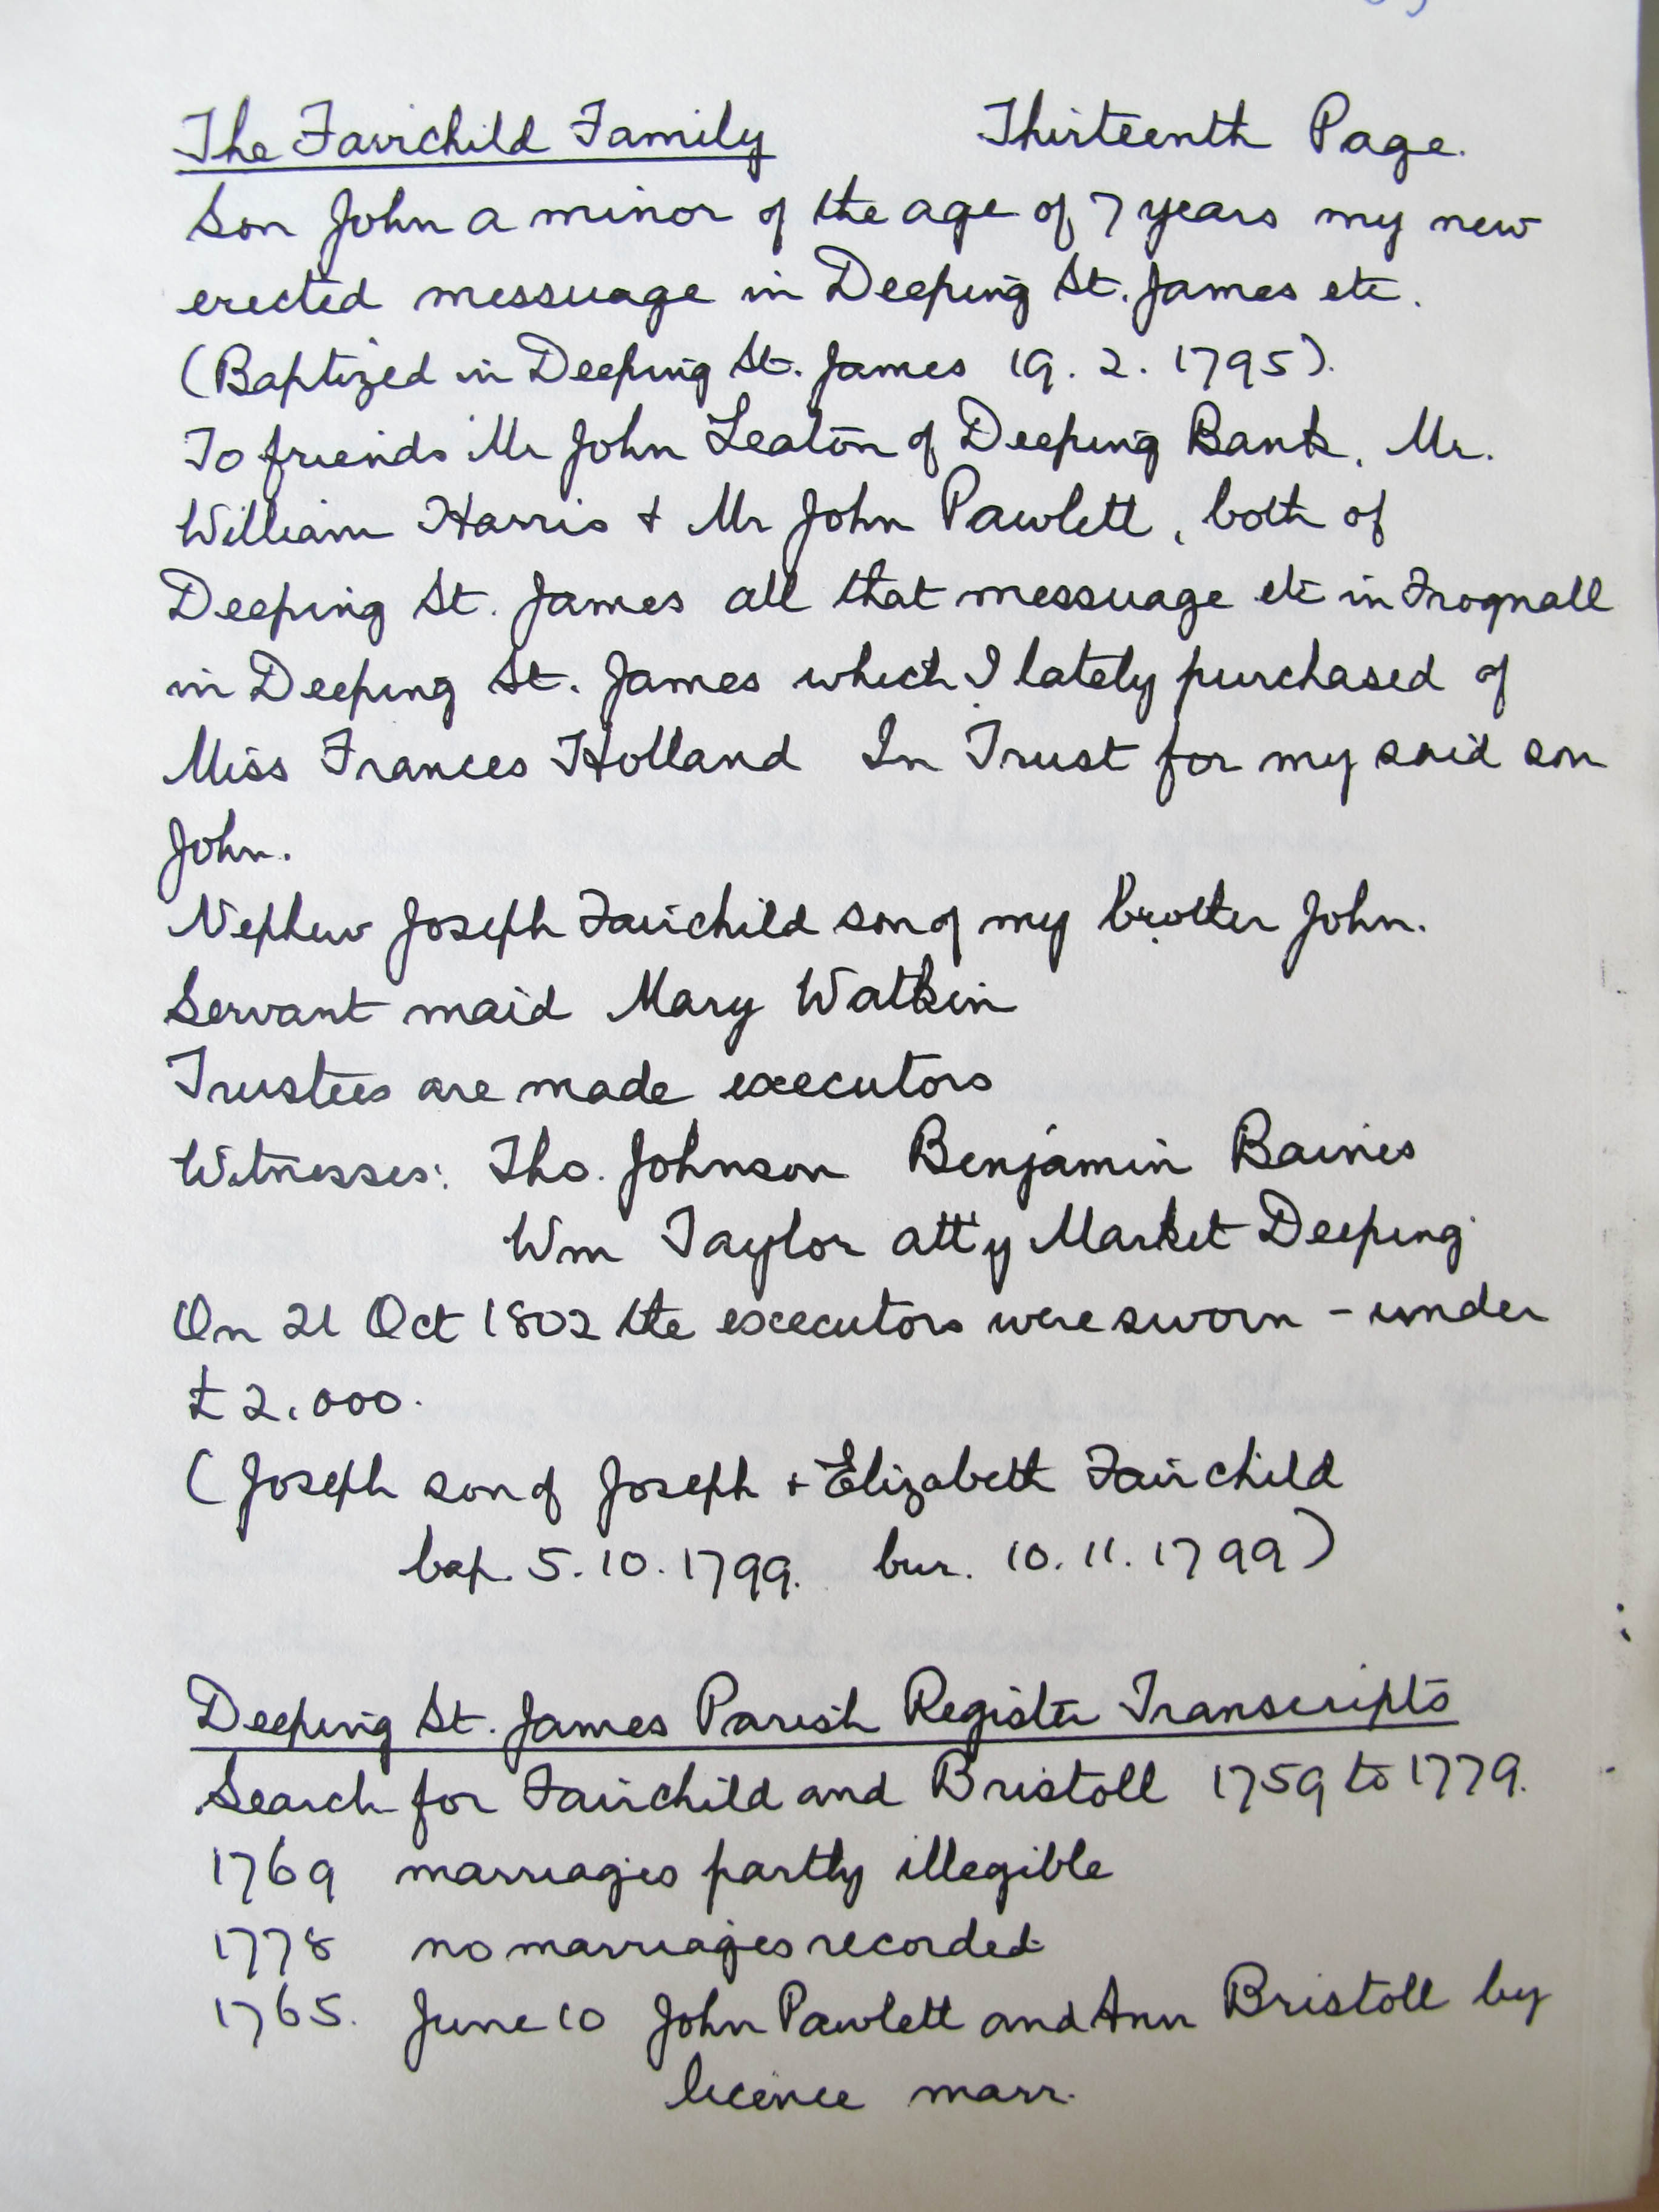 The Fairchild Family Thirteenth Page.
Son John a minor of the age of 7 years my new
erected messuage in Deeping St. James etc.
(Baptized in Deeping St. James 19. 2. 1795).
To friends Mr John Leaton of Deeping Bank, Mr.
William Harris + Mr John Pawlett, both of
Deeping St. James all that messuage etc in Frognall
in Deeping St. James which I lately purchased of
Miss Frances Holland In Trust for my said son
John.
Nephew Joseph Fairchild son of my brother John.
Servant maid Mary Watkin
Trustees are made executors
Witnesses: Tho. Johnson Benjamin Baines
Wm Taylor att'y Market Deeping
On 21 Oct 1802 the executors were sworn - under
£2,000.
(Joseph son of Joseph + Elizabeth Fairchild
bap. 5.10.1799. bur. 10.11.1799)
Deeping St. James Parish Register Transcripts
Search for Fairchild and Bristoll 1759 to 1779.
1769 marriages partly illegible
1778 no marriages recorded
1765. June 10 John Pawlett and Ann Bristoll by
licence marr.